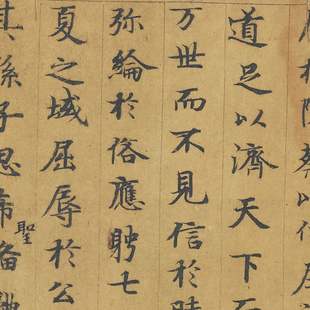 陳蔡以
道足以濟天下而
万世而不見信於時
弥綸於俗應聘七
夏之域屈辱於公
其孫子思希聖備